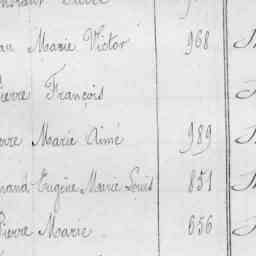 au Marie Victor 968
ierre François
erre Marie Aimé 989
nand-Eugène Marie Louis 851
Pierre Marie 656